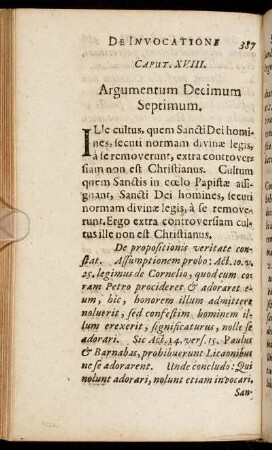 DE INVOCATIONE 387
CAPUT. XVIII.
Argumentum Decimum
Septimum.
ILle cultus, quem Sancti Dei homi-
nes, secuti normam divinæ legis,
à se removerunt, extra controver-
siam non est Christianus. Cultum
quem Sanctis in cœlo Papistæ assi-
gnant, Sancti Dei homines, secuti
normam divinæ legis, à se remove-
runt. Ergo extra controversiam cul-
tus ille non est Christianus.
De propositionis veritate con-
stat. Assumptionem probo: Act. 10. v.
25. legimus de Cornelio, quod cum co-
ram Petro procideret & adoraret e-
um, hic, honorem illum admittere
noluerit, sed confestim hominem il-
lum erexerit, significaturus, nolle se
adorari. Sic Act. 14. vers. 15. Paulus
& Barnabas, prohibuerunt Licaonibus
ne se adorarent. Unde concludo: Qui
nolunt adorari, nolunt etiam invocari.
San-